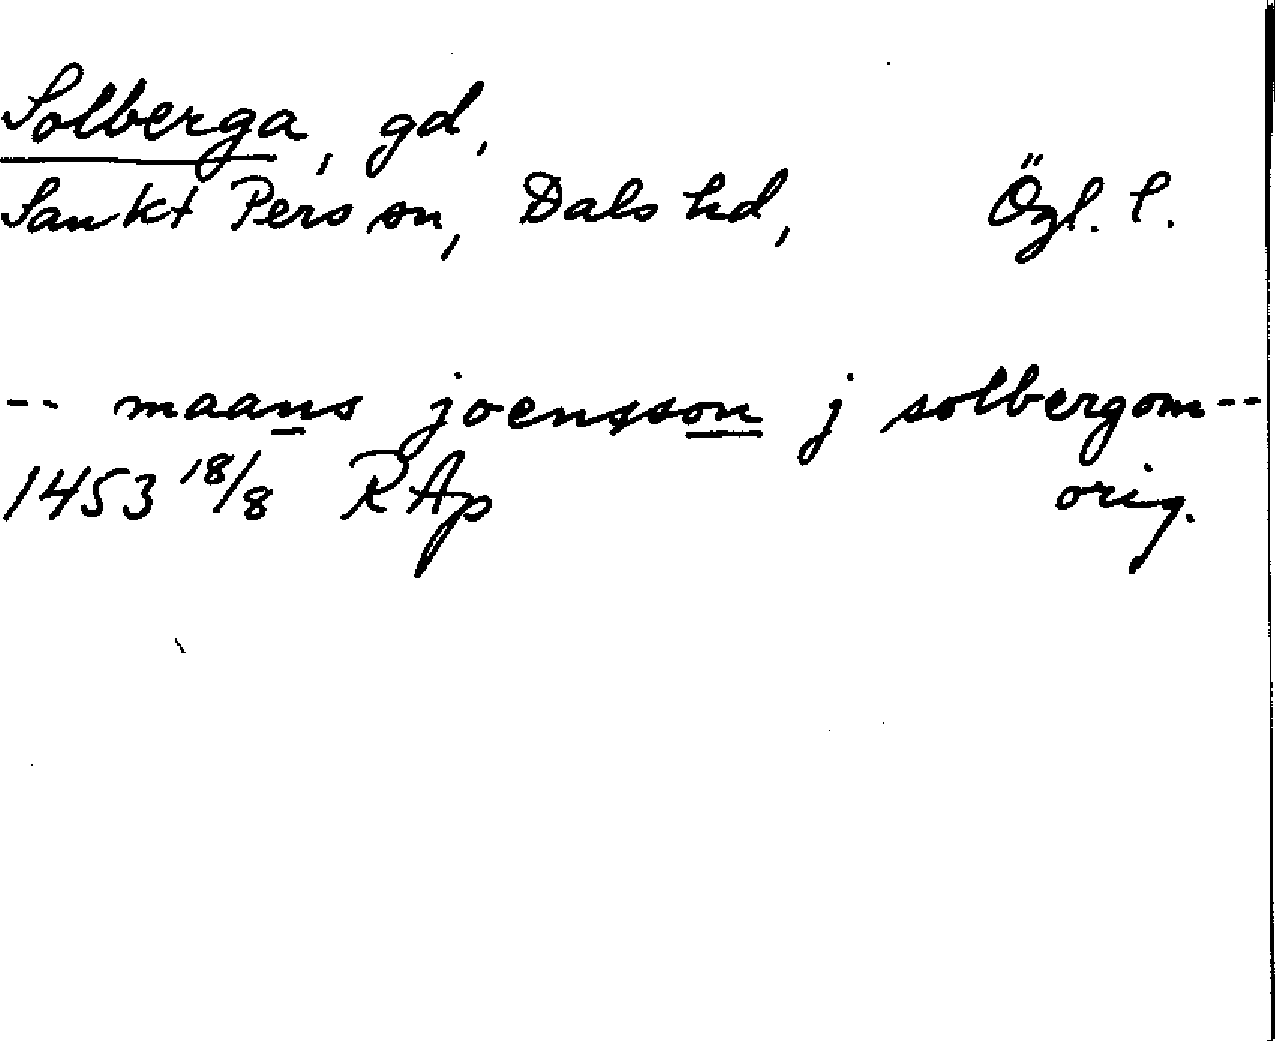 Solberga, gd,
Sankt Pers sn, Dals hd, Ögl. l.
-- maans joensson j solbergom--
1453 18/8 RAp orig.